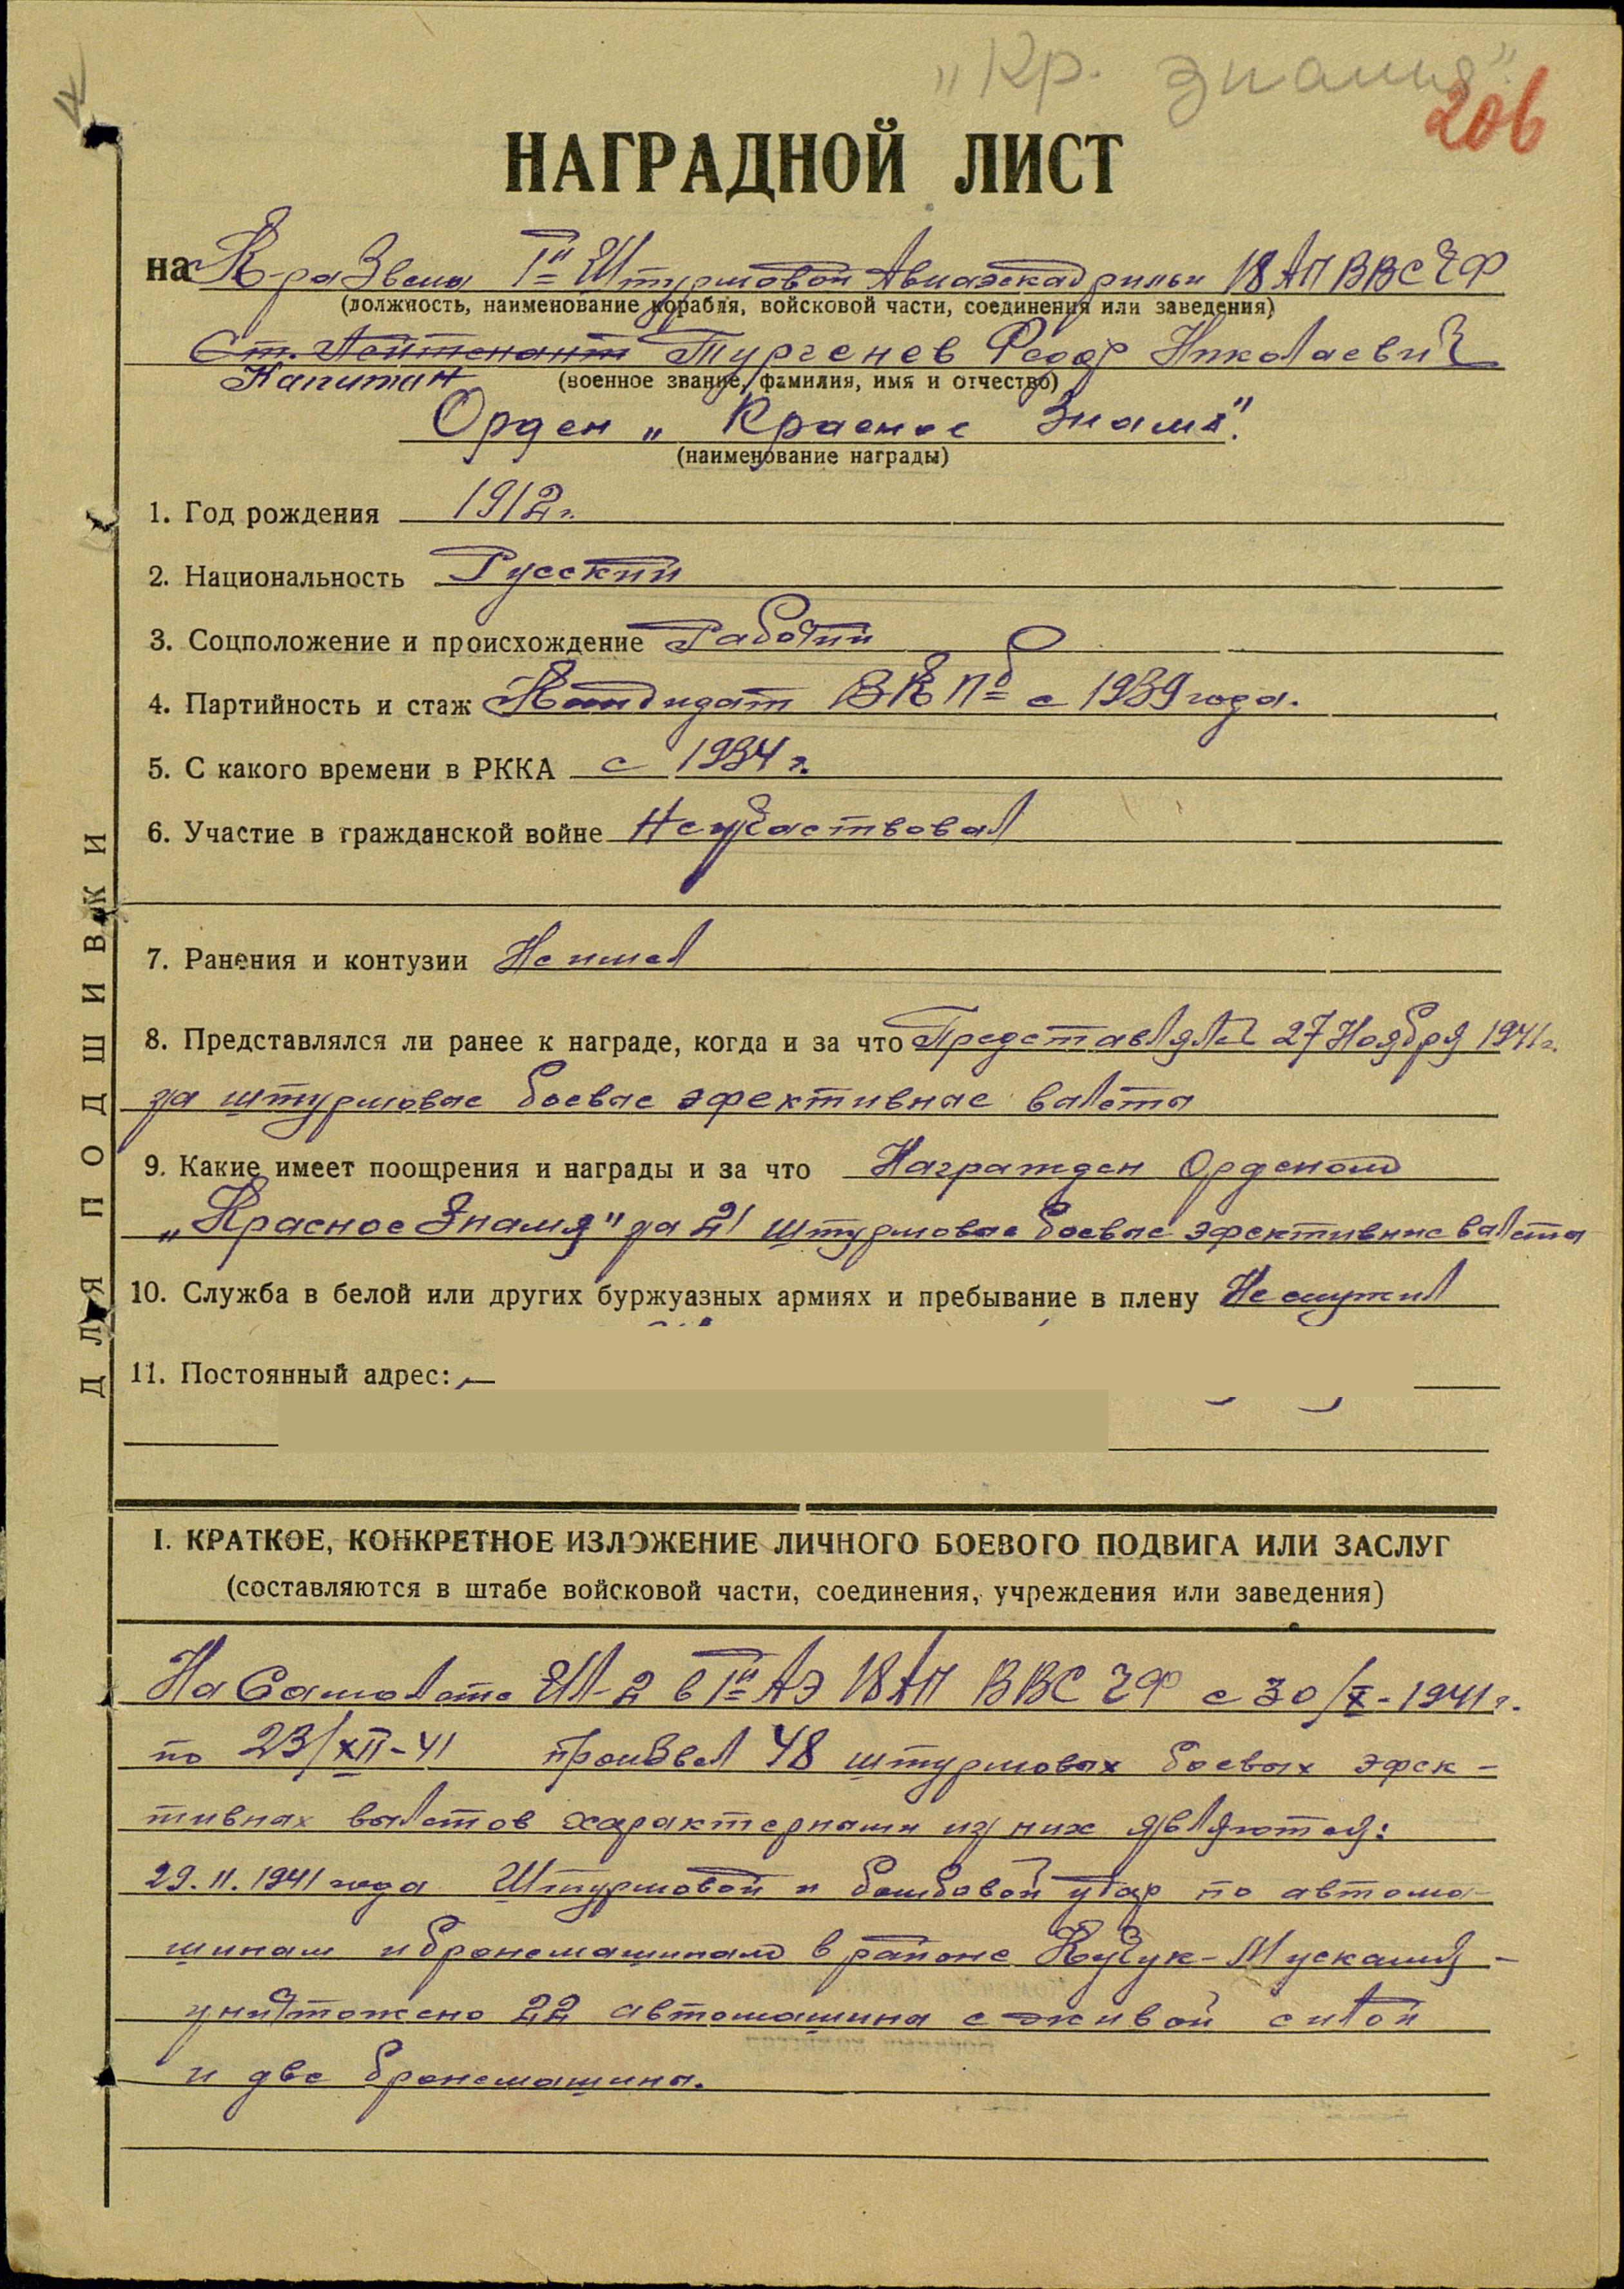 „Кр. знамя".
206
НАГРАДНОЙ ЛИСТ
на К-ра Звена Iй Штурмовой Авиаэскадрильи 18 АП ВВС ЧФ
(должность, наименование корабля, войсковой части, соединения или заведения)
Ст. Лейтенант Тургенев Федор Николаевич
Капитан
(военное звание, фамилия, имя и отчество)
Орден „Красное Знамя".
(наименование награды)
1. Год рождения 1912 г.
2. Национальность Русский
3. Соцположение и происхождение Рабочий
4. Партийность и стаж Кандидат ВКПб с 1939 года.
5. С какого времени в РККА с 1934 г.
6. Участие в гражданской войне Не участвовал
7. Ранения и контузии Не имел
8. Представлялся ли ранее к награде, когда и за что Представлялся 27 Ноября 1941 г.
за штурмовые боевые эфективные вылеты
9. Какие имеет поощрения и награды и за что Награжден Орденом
„Красное Знамя" за 21 штурмовые боевые эфективные вылеты
10. Служба в белой или других буржуазных армиях и пребывание в плену Не служил
11. Постоянный адрес:
I. КРАТКОЕ, КОНКРЕТНОЕ ИЗЛОЖЕНИЕ ЛИЧНОГО БОЕВОГО ПОДВИГА ИЛИ ЗАСЛУГ
(составляются в штабе войсковой части, соединения, учреждения или заведения)
На Самолете ИЛ-2 в Iй АЭ 18 АП ВВС ЧФ с 30/X-1941 г.
по 23/XII-41 произвел 48 штурмовых боевых эфек-
тивных вылетов характерными из них являются:
29.11.1941 года Штурмовой и бомбовой удар по автома-
шинам и бронемашинам в районе Кучук-Мускамя -
уничтожено 22 автомашины с живой силой
и две бронемашины.
ДЛЯ ПОДШИВКИ